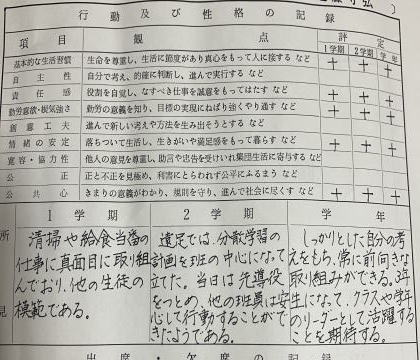 行動及び性格の記録
項目 観点 評定
1学期 2学期 学年
基本的な生活習慣 生命を尊重し、生活に節度があり真心をもって人に接する など + + +
自主性 自分で考え、的確に判断し、進んで実行する など
責任感 役割を自覚し、なすべき仕事を誠意をもってはたす など + + +
勤労意欲・根気強さ 勤労の意義を知り、目標の実現にねばり強くやり通す など + + +
創意工夫 進んで新しい考えや方法を生み出そうとする など
情緒の安定 落ちついて生活し、生きがいや満足感をもって暮らす など + + +
寛容・協力性 他人の意見を尊重し、助言や忠告を受けいれ集団生活に寄与する など
公正 正と不正を見極め、利害にとらわれず公平にふるまう など
公共心 きまりの意義がわかり、規則を守り、進んで社会に尽くす など + + +
1学期 2学期 学年
所見
清掃や給食当番の
仕事に真面目に取り組
んでおり、他の生徒の
模範である。
遠足では、分散学習の
計画を班の中心になって
立てた。当日は先導役
をつとめ、他の班員は安
心して行動することがで
きたようである。
しっかりとした自分の考
えをもち、常に前向きな
取り組みができる。3年
生になって、クラスや学年
のリーダーとして活躍する
ことを期待する。
出席・欠席の記録